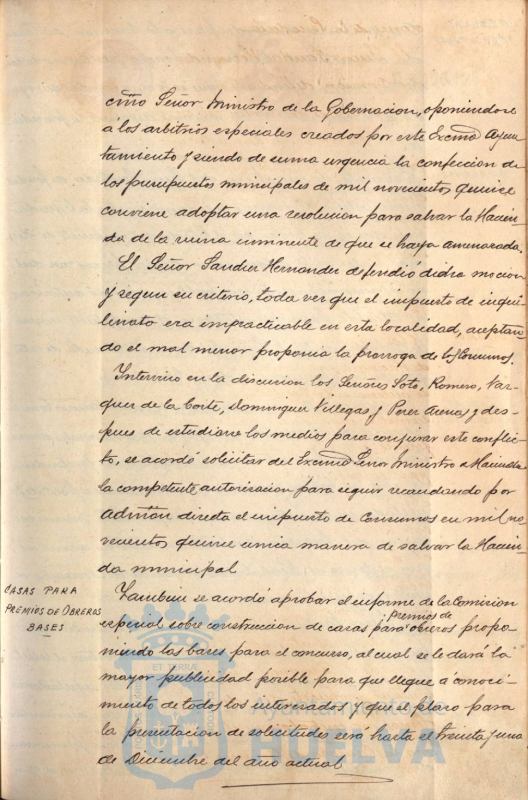 cmo Señor Ministro de la Gobernacion, oponiendose
á los arbitrios especiales creados por este Excmo Ayun-
tamiento y siendo de suma urgencia la confeccion de
los presupuestos municipales de mil novecientos quince
conviene adoptar una resolucion para salvar la Hacien-
da de la ruina inminente de que se haya amenazada.
El Señor Sanchez Hernandez defendió dicha mocion
y segun su criterio, toda vez que el impuesto de inqui-
linato era impracticable en esta localidad, aceptan-
do el mal menor proponia la prorroga de los Consumos.
Intervino en la discusion los Señores Soto, Romero, Vaz-
quez de la Corte, Dominguez Villegas y Perez Arenas y des-
pues de estudiarse los medios para conjurar este conflic-
to, se acordó solicitar del Excmo Señor Ministro de Hacienda
la competente autorizacion para seguir recaudando por
Admñon directa el impuesto de Consumos en mil no-
vecientos quince unica manera de salvar la Hacien-
da municipal
CASAS PARA
PREMIOS DE OBREROS
BASES
Tambien se acordó aprobar el informe de la Comision
especial sobre construccion de casas para premios de obreros propo-
niendo las bases para el concurso, al cual se le dará la
mayor publicidad posible para que llegue á conoci-
miento de todos los interesados y que el plazo para
la presentacion de solicitudes será hasta el treinta y uno
de Diciembre del año actual
ET TERRÆ
Ayuntamiento de
HUELVA